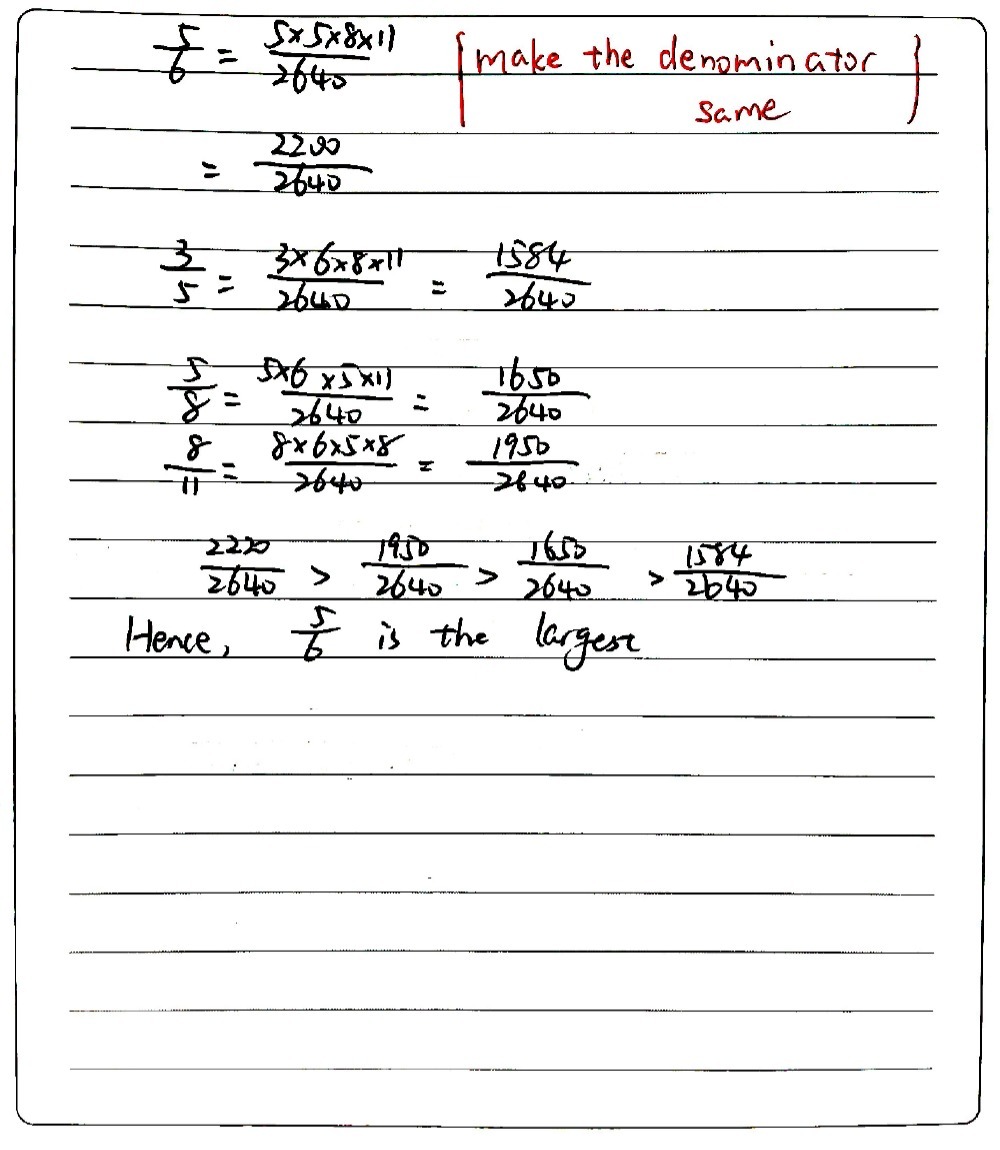 5/6 = 5×5×8×11/2640 [make the denominator
same]
= 2200/2640
3/5 = 3×6×8×11/2640 = 1584/2640
5/8 = 5×6×5×11/2640 = 1650/2640
8/11 = 8×6×5×8/2640 = 1950/2640
2220/2640 > 1950/2640 > 1650/2640 > 1584/2640
Hence, 5/6 is the largest